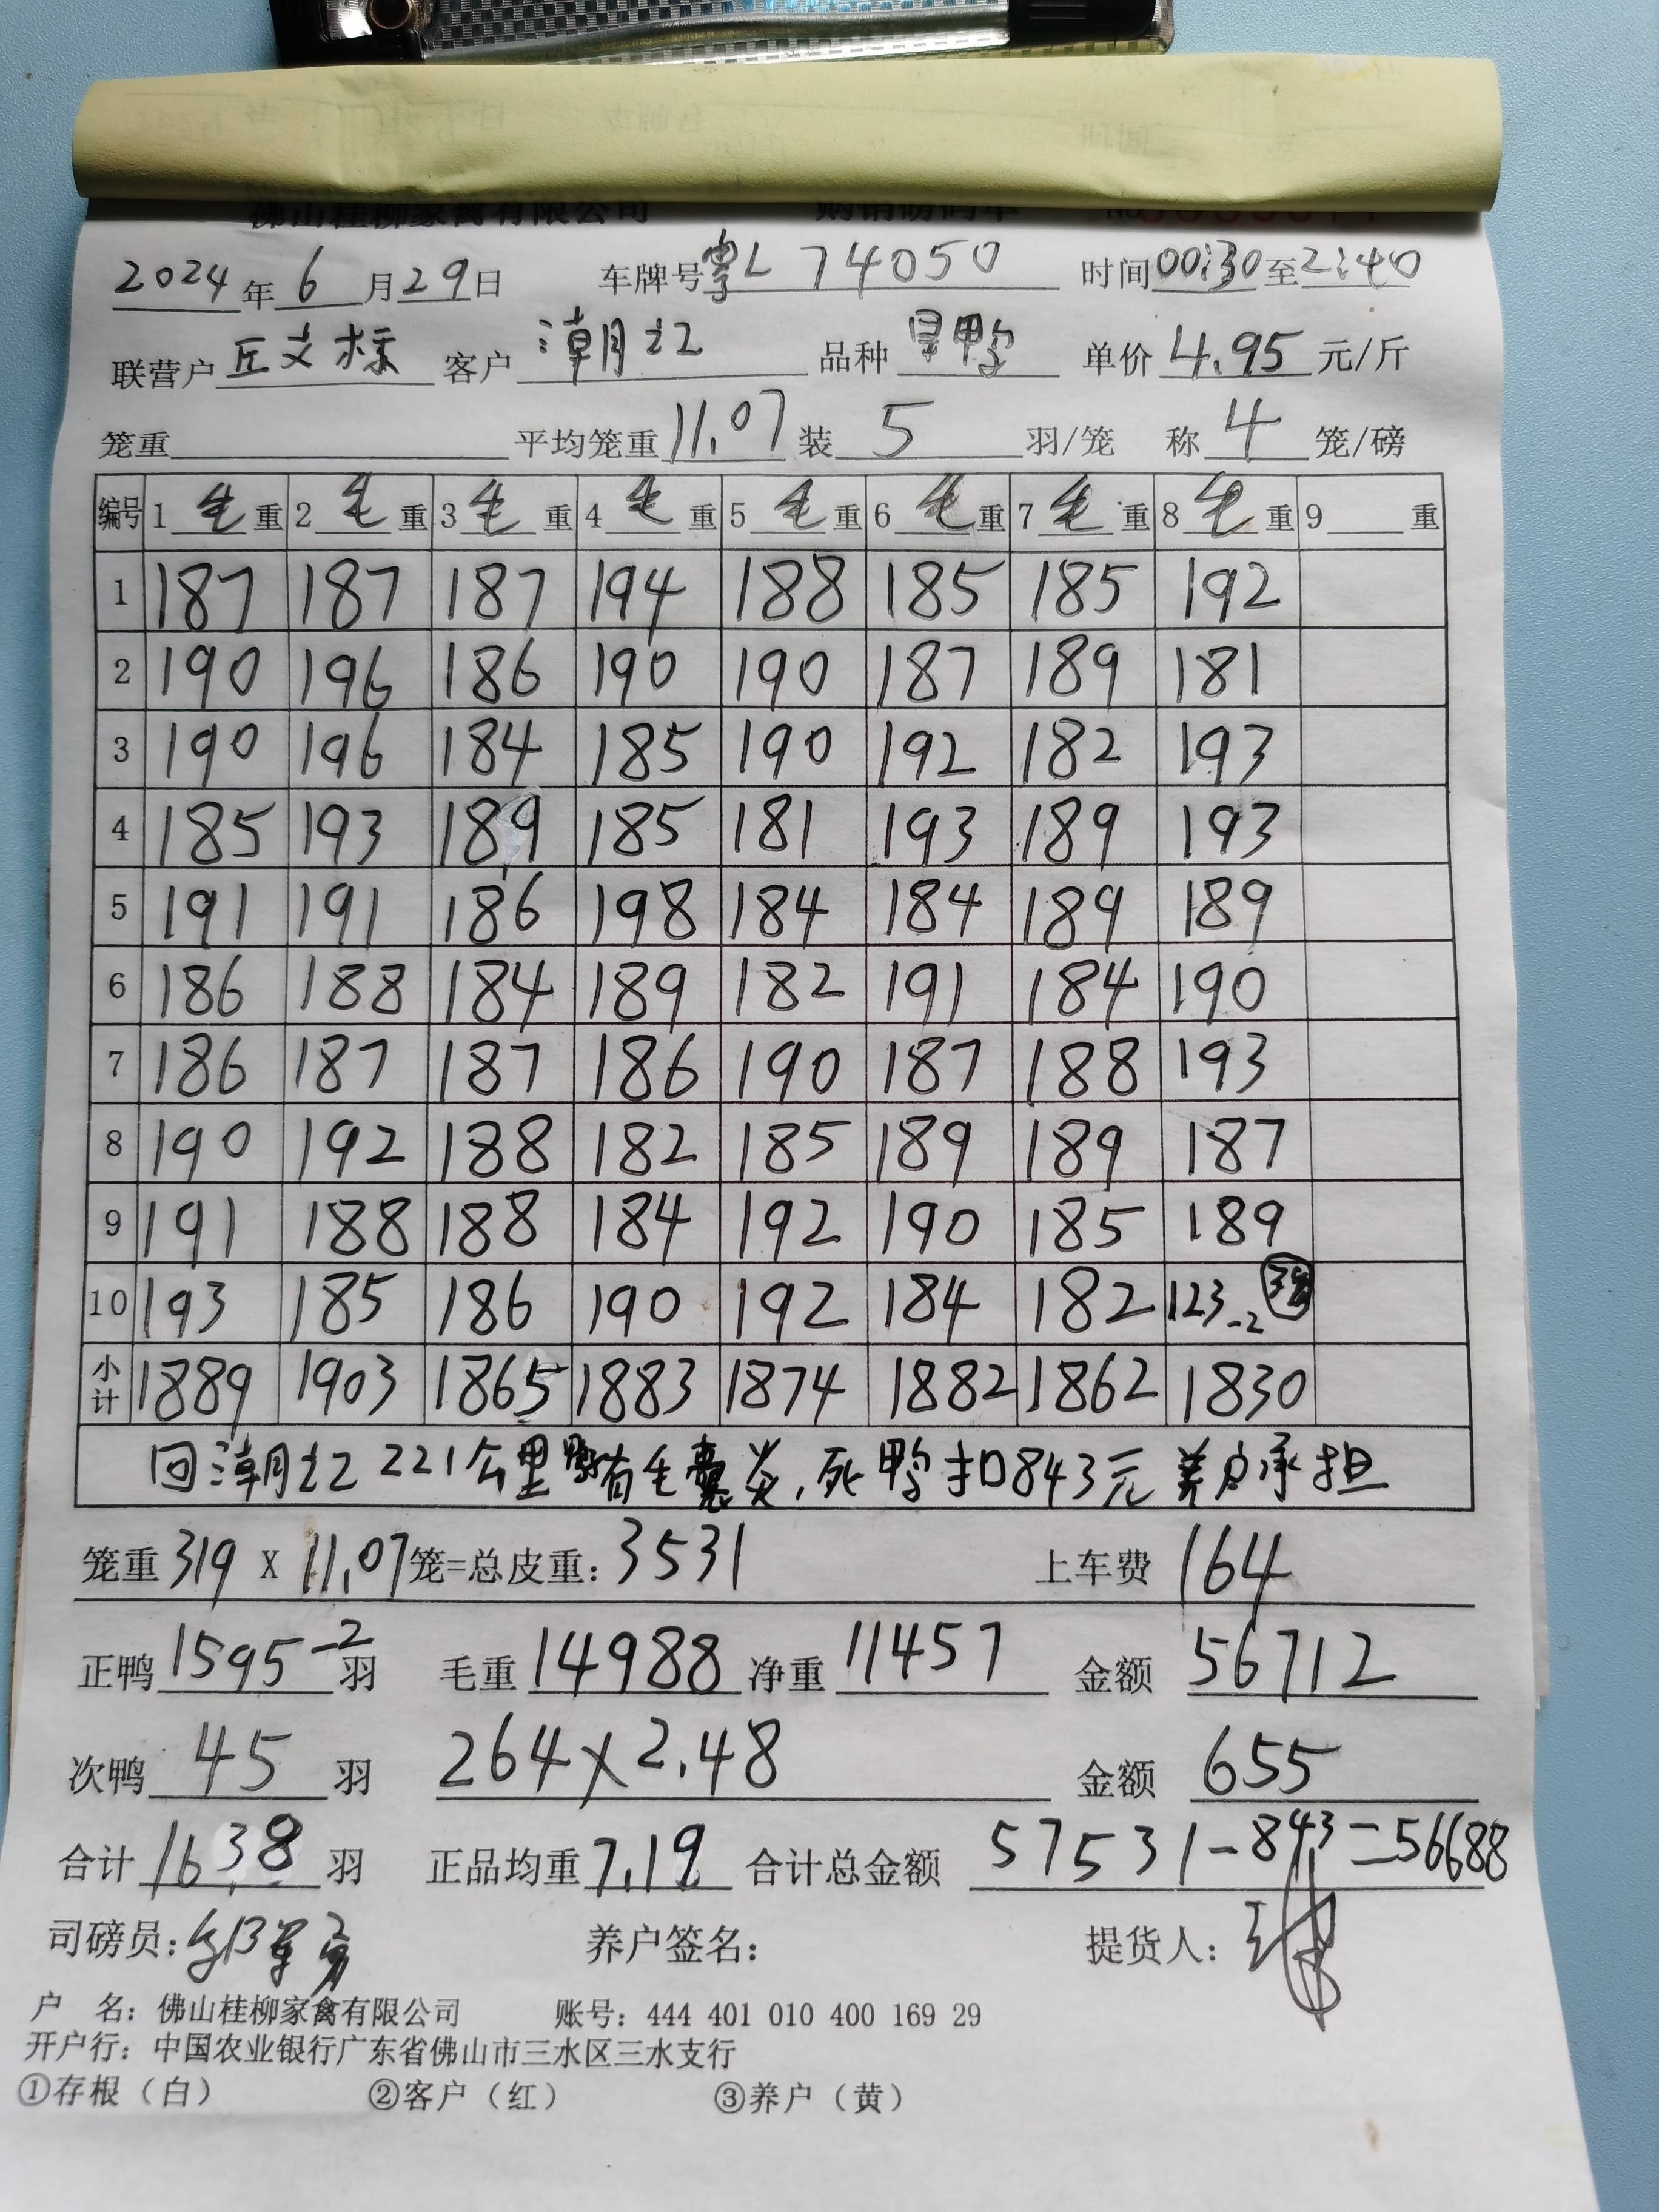 佛山桂柳家禽有限公司 购销磅码单 No
2024年6月29日 车牌号粤L 74050 时间00:30至2:40
联营户丘文标 客户潮红 品种 单价4.95元/斤
笼重 平均笼重11.07装5羽/笼 称4笼/磅
编号 1毛重 2毛重 3毛重 4毛重 5毛重 6毛重 7毛重 8毛重 9 重
1 187 187 187 194 188 185 185 192
2 190 196 186 190 190 187 189 181
3 190 196 184 185 190 192 182 193
4 185 193 189 185 181 193 189 193
5 191 191 186 198 184 184 189 189
6 186 188 184 189 182 191 184 190
7 186 187 187 186 190 187 188 193
8 190 192 188 182 185 189 189 187
9 191 188 188 184 192 190 185 189
10 193 185 186 190 192 184 182 123-2
小计 1889 1903 1865 1883 1874 1882 1862 1830
回潮红221公里鸭有毛囊炎,死鸭扣843元养户承担
笼重319 X 11.07笼=总皮重:3531 上车费164
正鸭1595-2羽 毛重14988净重11457 金额56712
次鸭45羽 264×2.48 金额655
合计1638羽 正品均重7.19 合计总金额57531-843=56688
司磅员: 养户签名: 提货人:
户 名:佛山桂柳家禽有限公司 账号:444 401 010 400 169 29
开户行:中国农业银行广东省佛山市三水区三水支行
①存根(白) ②客户(红) ③养户(黄)